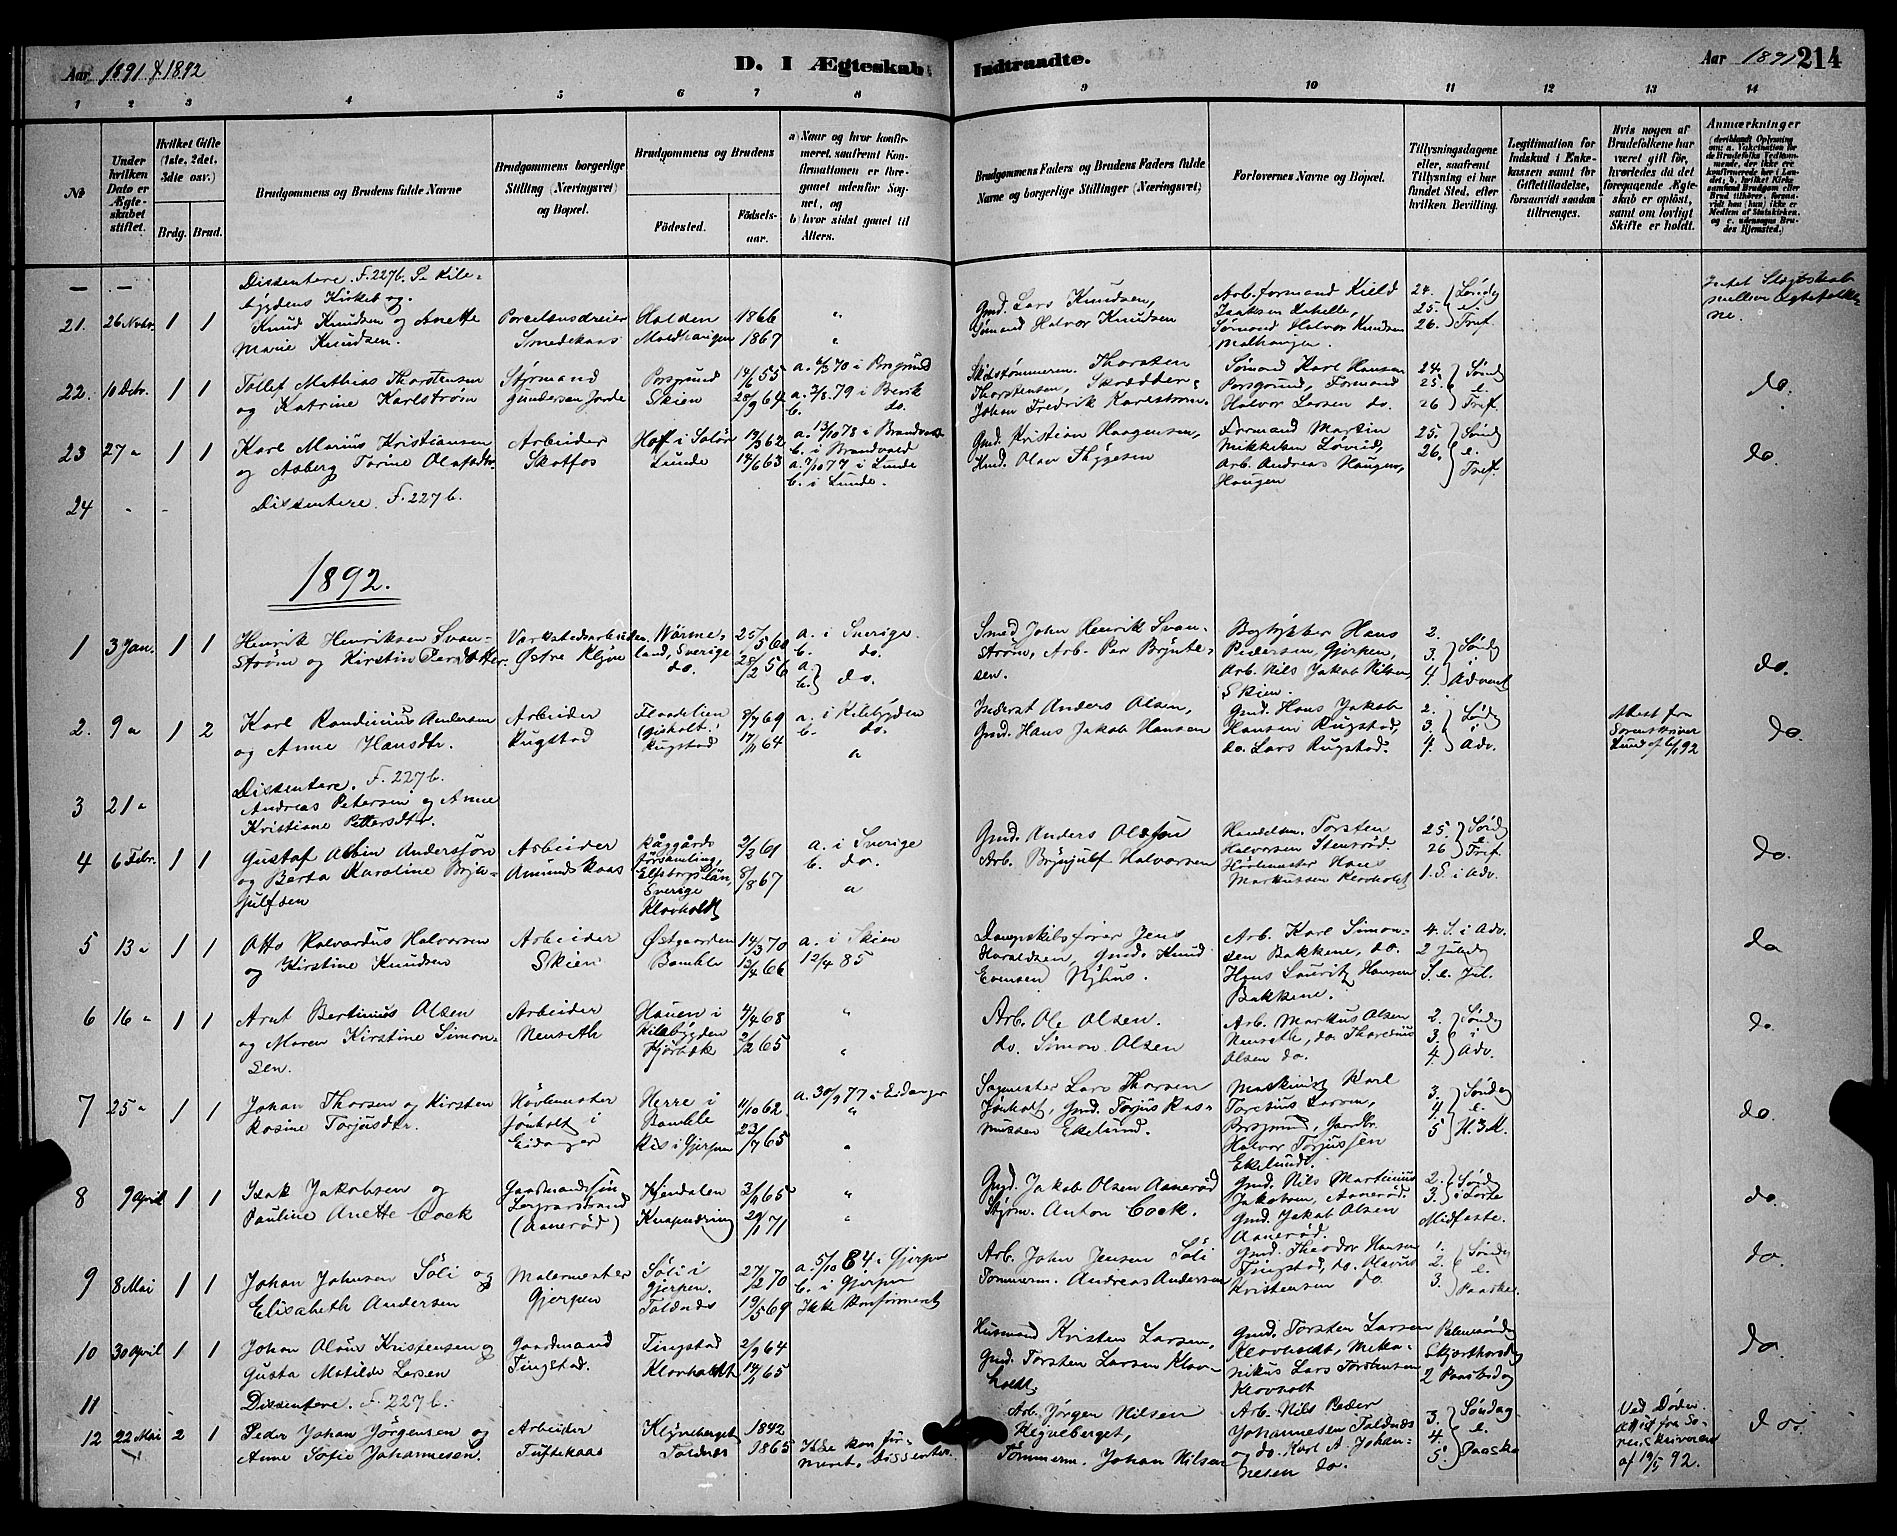 Aar 1891 & 1892
D. I Ægteskab
Indtraadte.
Aar 1891
214
1 2 3 4 5 6 7 8 9 10 11 12 13 14
No
Under hvilken Dato er Ægteskabet stiftet.
Hvilket Gifte (1ste, 2det, 3die osv.)
Brdg. Brud.
Brudgommens og Brudens fulde Navne
Brudgommens borgerlige Stilling (Næringsvei) og Bopæl.
Brudgommens og Brudens
Fødested.
Fødsels-aar.
a) Naar og hvor konfirmeret, saafremt Konfirmationen er foregaaet udenfor Sognet, og
b) hvor sidst gaaet til Alters.
Brudgommens Faders og Brudens Faders fulde Navne og borgerlige Stillinger (Næringsvei)
Forlovernes Navne og Bopæl.
Tillysningsdagene eller, saafremt Tillysning ei har fundet Sted, efter hvilken Bevilling.
Legitimation for Indskud i Enkekassen samt for Giftetilladelse, forsaavidt saadan tiltrænges.
Hvis nogen af Brudefolkene har været gift før, hvorledes da det foregaaende Ægteskab er opløst, samt om lovligt Skifte er holdt.
Anmærkninger
— —
Dissentere. F. 227b. Se Kile-
bygdens Kirkebog.
21. 26 Novbr. 1 1 Knud Knudsen og Anette
Marie Knudsen.
Porcelænsdreier
Smedekaas
Halden 1866 "
1867 "
Gmd. Lars Knudsen,
Sømand Halvor Knudsen
Arb.formand Kield
Isaksen
Sømand Halvor Knudsen
24.
25.
26.
Søndg
e.
Tref.
Intet Slægtskab
mellem Ægtefolke-
ne.
22. 10 Debr. 1 1 Tollef Mathias Thorstensen
og Katrine Karlstrøm
Styrmand
Gundersen Jorde
Porsgrund 14/6 55
Skien 28/9 64
a. 6/3 70 i Prsgrund
b. do.
Skibstømmerm. Thorsten
Thorstensen, Skrædder
Johan Fredrik Karlstrøm.
Sømand Karl Hansen
Porsgrund, Formand
Halvor Larsen do.
24.
25.
26
Søndg
e.
Tref.
do.
23 27 " 1 1 Karl Marius Kristiansen
og Asberg Torine Olafsdtr.
Arbeider
Skotfos
Hoff i Solør
Lunde 14/6 63
a. 13/10 78 i Brandvold
b. i Brandvold
a. 7/10 77 i Lunde
b. i Lunde.
Gmd. Kristian Haagensen,
Hmd. Olav Thygesen
Formand Martin
Mikkelsen Løvlid,
Arb. Andreas Haugen,
Haugen
25.
26.
Søndg
e.
Tref.
do.
24 - - Dissentere. F. 227b.
1892.
1 3 Jan. 1 1 Henrik Henriksen Svan-
strøm og Kirstin Persdatter.
Verkstedsarbeider
Østre Klyve
Wärme-
land, Sverige
do.
25/5 60
28/2 56
a. i Sverige
b. do.
a.
b. do.
Smed John Henrik Svan-
strøm, Arb. Per Brynte-
sen.
Bogtykker Hans
Pedersen, Gjerpen,
Arb. Nils Jakob Nilsen,
Skien.
2.
3.
4.
Søndg
i
Advent
do.
2. 9 " 1 2 Karl Randinius Andersen
og Anne Hansdtr.
Arbeider
Rugstad
Rugstad
8/7 69
17/11 64
a. i Kilebygden
b. do.
"
Inderst Anders Olsen,
Gmd. Hans Jakob Hansen
Gmd. Hans Jakob
Hansen Rugstad,
do. Lars Rugstad.
2.
3.
4.
Søndg
i
Adv.
Attest fra
Sorenskriver
Lund af 6/1 92
do.
3 21 " Dissentere. F. 227b.
Andreas Petersen og Anne
Kristiane Pettersdtr.
4 6 Febr. 1 1 Gustaf Albin Andersson
og Berta Karoline Brjn-
julfsen
Arbeider
Amundskaas
Råggårds
församling,
Elfsborgslän,
Sverige
Klovholdt
2/2 61
8/8 67
a. i Sverige
b. do.
"
Gmd. Anders Olsson
Arb. Brynjulf Halvorsen
Handelsm. Torsten
Halvorsen Stensrød
Høvlmester Hans
Markussen
25.
26
Søndg
e.
Tref.
1. S. i Adv.
do.
5 13 " 1 1 Otto Halvardus Halvorsen
og Kirstine Knudsen
Arbeider
Skien
Østgaarden
Bamble
14/3 70
13/4 66
a. i Skien
12/4 85
Dampskibsfører Jens
Haraldsen, Gmd. Knud
Evensen Nyhus.
Arb. Karl Simon-
sen Bakkene, do.
Hans Lauritz Hansen
Bakkene.
4. S. i Adv.
2 Juledg
S. e. Jul.
do
6 16 " 1 1 Arnt Bertinius Olsen
og Maren Kirstine Simon-
sen.
Arbeider
Nenseth
Hauen i
Kilebygden
Hjørbæk
4/4 68
2/2 65
"
"
Arb. Ole Olsen.
do. Simon Olsen
Arb. Markus Olsen
Nenseth, do. Thorenius
Olsen do.
2.
3.
4.
Søndg
i
Adv.
do
7 25 " 1 1 Johan Thorsen og Kirsten
Rosine Torjusdtr.
Høvlmester
Jønholt i
Eidanger
Herre i
Bamble
Ris i Gjerpen
11/10 62
23/7 65
a. 30/9 77 i Eidanger
"
"
Sagmester Lars Thorsen
Jønholt, Gmd. Torjus Ras-
mussen Ekelund.
Maskinist Karl
Toresius Larsen,
Porsgrund, Gaardbr.
Halvor Torjussen
Ekelund.
3.
4.
5
Søndg
e.
H. 3 K.
do.
8 9 April 1 1 Isak Jakobsen og
Pauline Anette Cock
Gaardmandssøn
(Aanerød)
Hjendalen
3/9 65
29/11 71
"
"
Gmd. Jakob Olsen Aanerød
Styrm. Anton Cock.
Gmd. Nils Martinius
Jakobsen, Aanerød.
Gmd. Jakob Olsen
Aanerød.
2.
3.
Søndg
i Faste
Midfaste.
do.
9 8 Mai 1 1 Johan Johnsen Søli og
Elisabeth Andersen
Malermester
Gjerpen
Søli i
Gjerpen.
Toldnæs
27/2 70
19/5 69
a. 5/10 84 i Gjerpen
b. i Gjerpen
Ikke konfirmeret
Arb. John Jensen Søli
Tømmerm. Andreas Andersen
Gmd. Theodor Hansen
Tingstad, do. Olavus
Kristensen do.
1.
2.
3.
Søndg
e.
Paaske.
do.
10 30 April 1 1 Johan Alour Kristensen og
Gusta Matilde Larsen
Gaardmand
Tingstad.
Tingstad
Klovholdt
2/9 64
14/11 65
Husmand Kristen Larsen,
Gmd. Torsten Larsen Klov-
holdt,
Gmd. Torsten Larsen
Klovholdt, Meka-
nikus Lars Torstensen
Klovholt
Palmesøndg
Skjærthorsdg
2 Paaskedag
do.
11 Dissentere. F. 227b.
12 22 Mai 2 1 Peder Johan Jørgensen og
Anne Sofie Johannesen.
Arbeider
Tuftekaas
Klyveberget
Toldnæs
1842
1865
Ikke konfir-
meret, Dissenter.
Arb. Jørgen Nilsen
Klyveberget,
Tømmerm. Johan Nilsen
Arb. Nils Peder
Johannesen Toldnæs
og do. Karl A. Johan-
nesen do.
3.
4.
5.
Søndag
e.
Paaske
Ved Døden
Attest fra So-
renskriveren
af 19/5 92.
do.